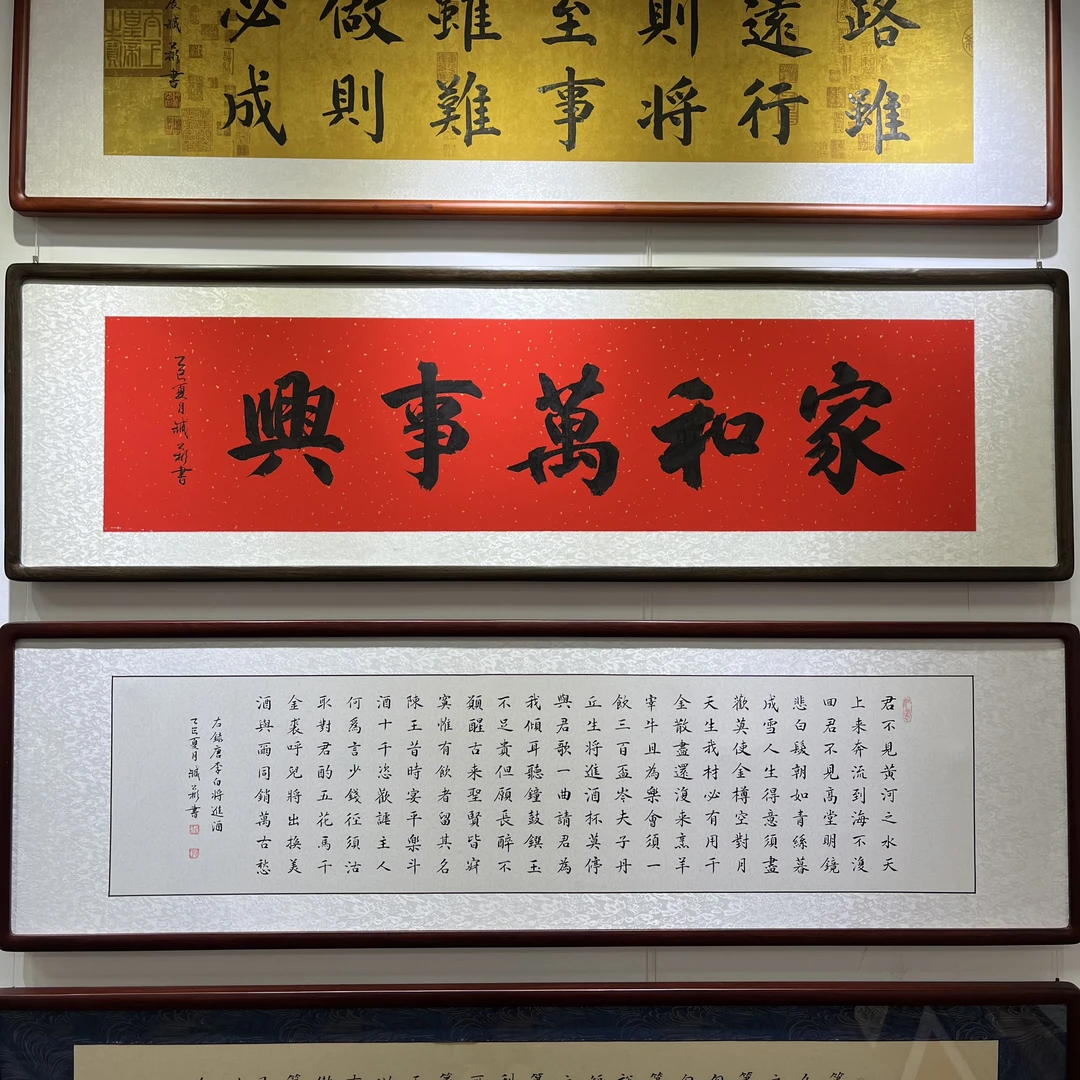 路雖
遠行
則将
至事
雖難
做則
必成
家和萬事興
乙巳夏月誠彩書
君不見黃河之水天
上来奔流到海不復
回君不見高堂明鏡
悲白髮朝如青絲暮
成雪人生得意須盡
歡莫使金樽空對月
天生我材必有用千
金散盡還復来烹羊
宰牛且為樂會須一
飲三百盃岑夫子丹
丘生将進酒杯莫停
與君歌一曲請君為
我傾耳聽鐘鼓饌玉
不足貴但願長醉不
願醒古来聖賢皆寂
寞惟有飲者留其名
陳王昔時宴平樂斗
酒十千恣歡謔主人
何為言少錢径須沽
取對君酌五花馬千
金裘呼兒將出換美
酒與爾同銷萬古愁
右錄唐李白將進酒
乙巳夏月誠彩書